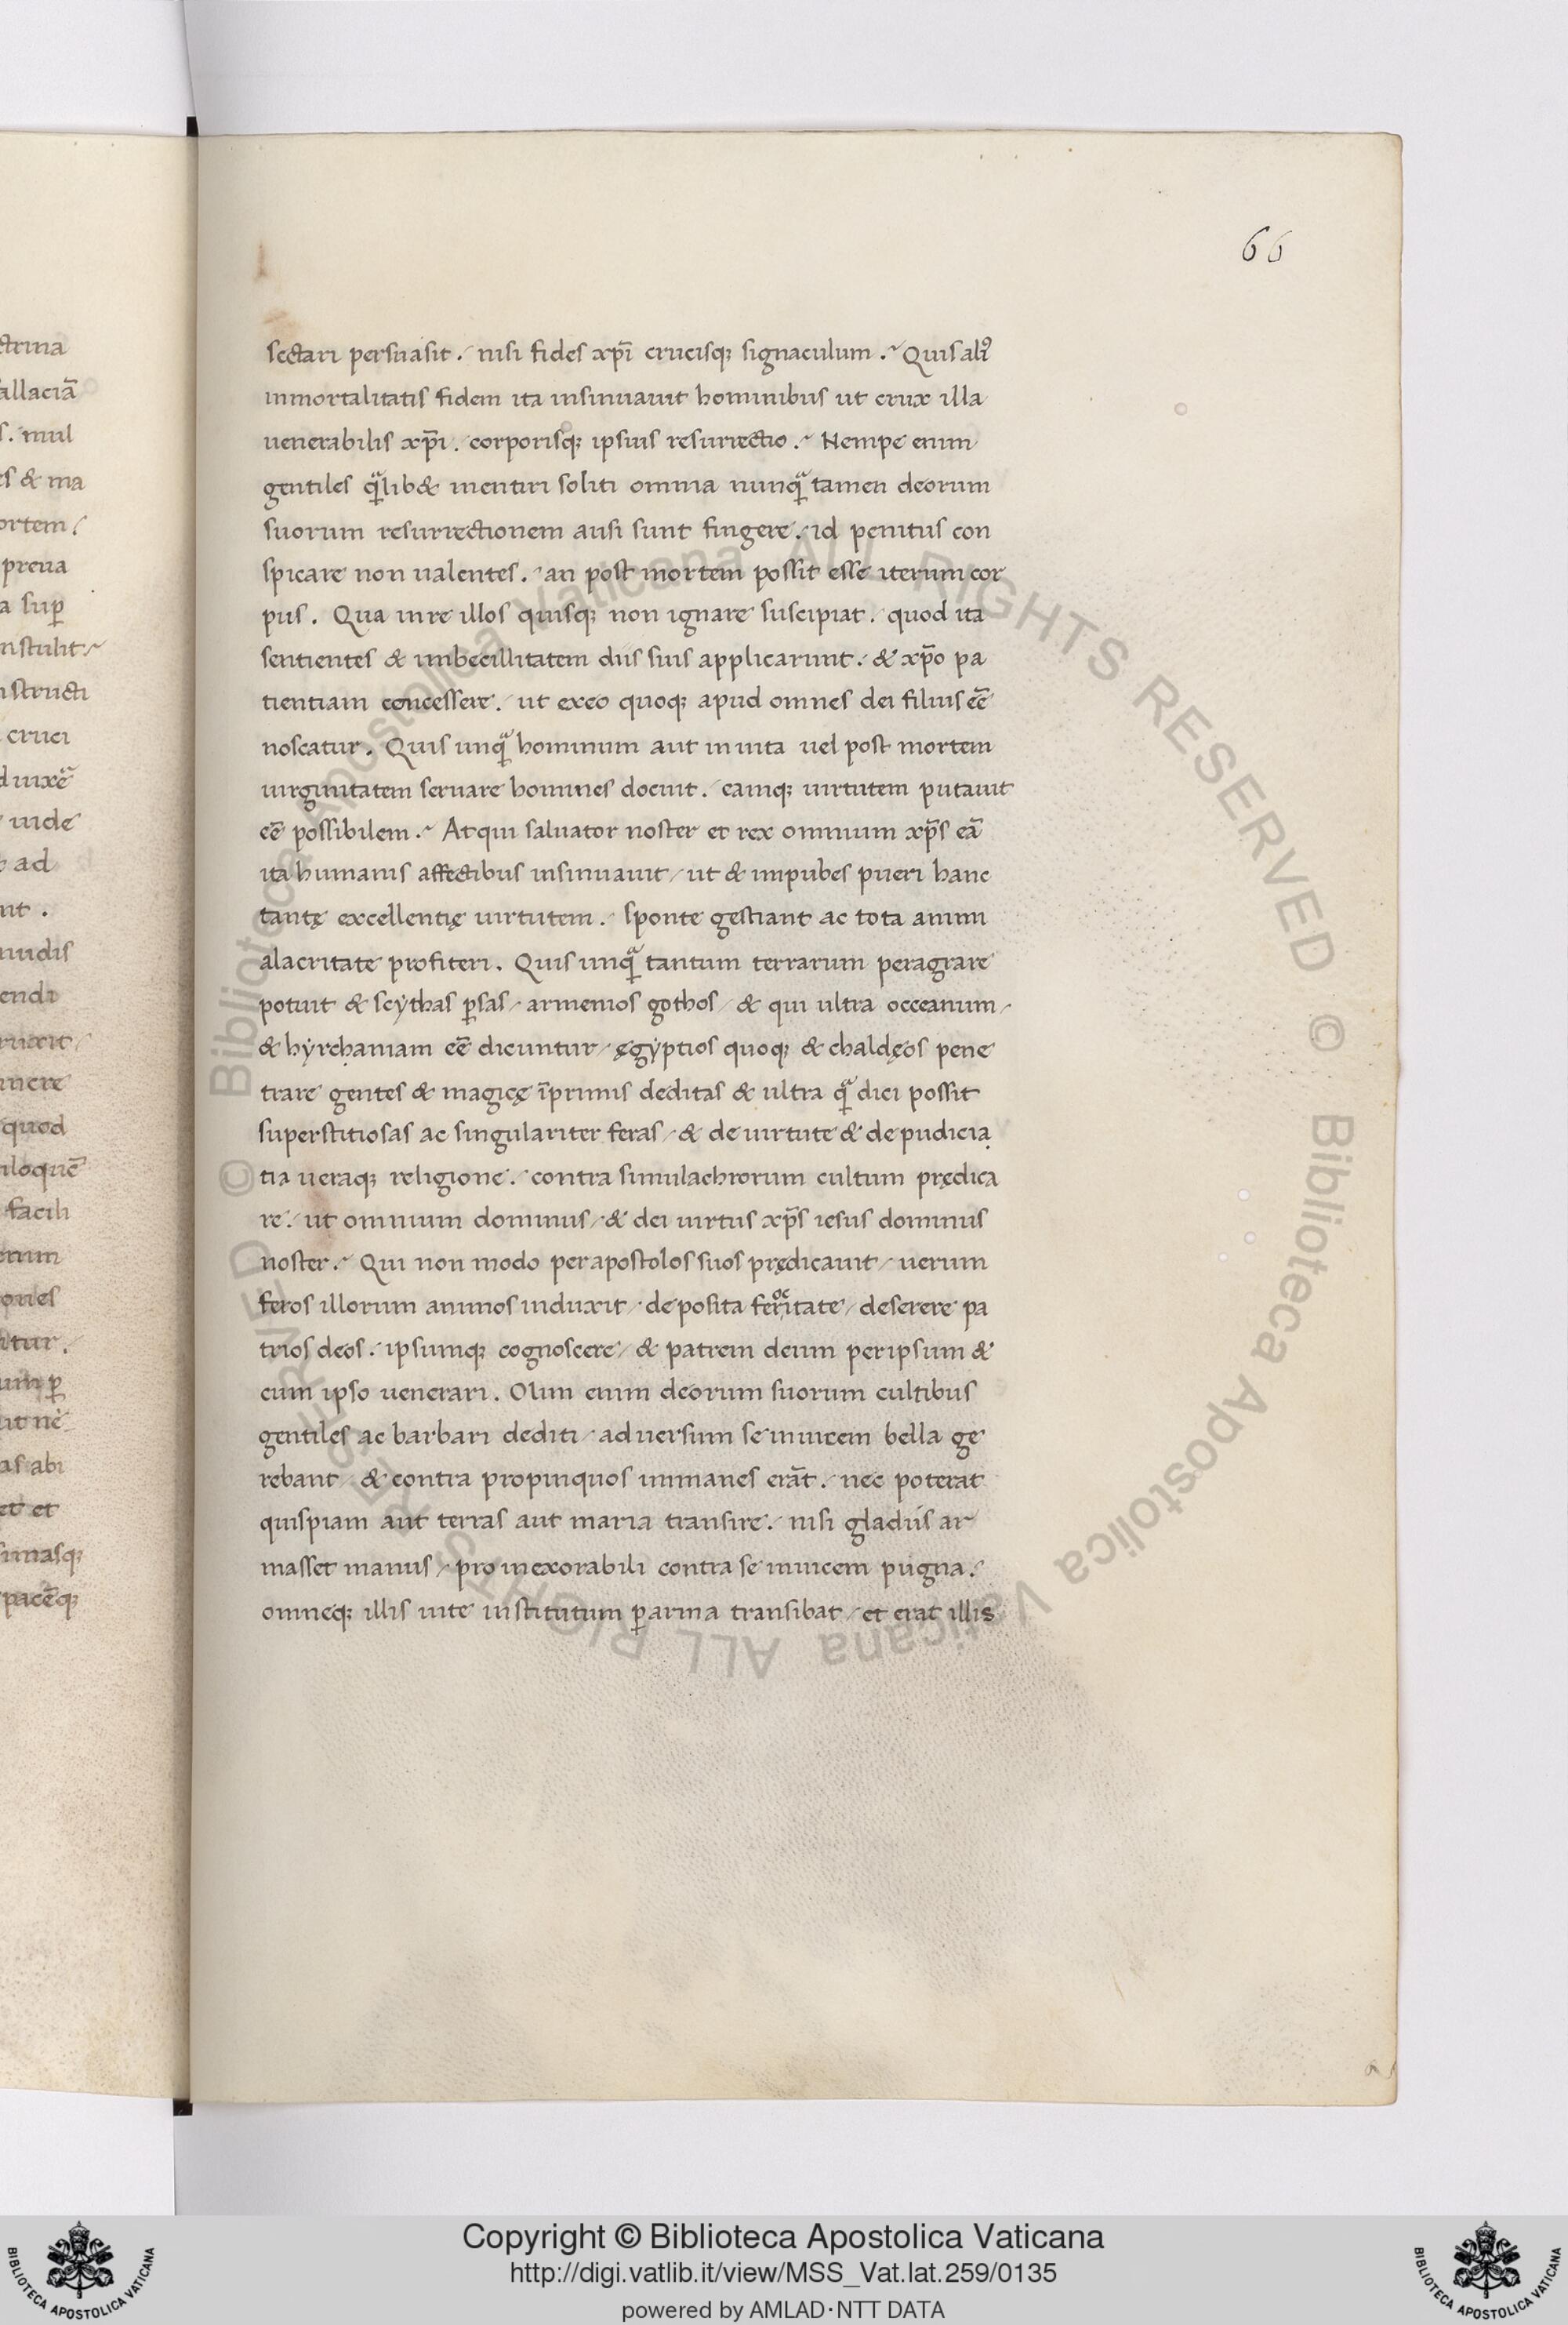 66
sectari persuasit. nisi fides xp̄i crucisq; signaculum. Quis aliꝰ
inmortalitatis fidem ita insinuauit hominibus ut crux illa
uenerabilis xp̄i. corporisq; ipsius resurrectio. Nempe enim
gentiles qͣlib& mentiri soliti omnia nunqͣ tamen deorum
suorum resurrectionem ausi sunt fingere. id penitus con
spicare non ualentes. an post mortem possit esse iterum cor
pus. Qua in re illos quisq; non ignare suscipiat. quod ita
sentientes & imbecillitatem diis suis applicarunt. & xp̄o pa
tientiam concessere. ut ex eo quoq; apud omnes dei filius eē
noscatur. Quis unqͣ hominum aut in uita uel post mortem
uirginitatem seruare homines docuit. eamq; uirtutem putauit
eē possibilem. Atqui saluator noster et rex omnium xp̄s eā
ita humanis affectibus insinuauit / ut & impubes pueri hanc
tantę excellentię uirtutem. sponte gestiant ac tota animi
alacritate profiteri. Quis unqͣ tantum terrarum peragrare
potuit & scẏthas ꝑsas / armenios gothos / & qui ultra occeanum /
& hẏrchaniam eē dicuntur / ęgẏptios quoq; & chaldęos pene
trare gentes & magicę īprimis deditas & ultra qͣ dici possit
superstitiosas ac singulariter feras / & de uirtute & de pudicia
tia ueraq; religione. contra simulachrorum cultum prędica
re. ut omnium dominus / & dei uirtus xp̄s iesus dominus
noster. Qui non modo per apostolos suos prędicauit / uerum
feros illorum animos induxit / deposita feritate / deserere pa
trios deos. ipsumq; cognoscere / & patrem deum per ipsum &
cum ipso uenerari. Olim enim deorum suorum cultibus
gentiles ac barbari dediti / aduersum se inuicem bella ge
rebant / & contra propinquos inmanes erāt. nec poterat
quispiam aut terras aut maria transire. nisi gladiis ar
masset manus / pro inexorabili contra se inuicem pugna.
omneq; illis uite institutum ꝑ arma transibat / et erat illis
Copyright © Biblioteca Apostolica Vaticana
http://digi.vatlib.it/view/MSS_Vat.lat.259/0135
powered by AMLAD·NTT DATA